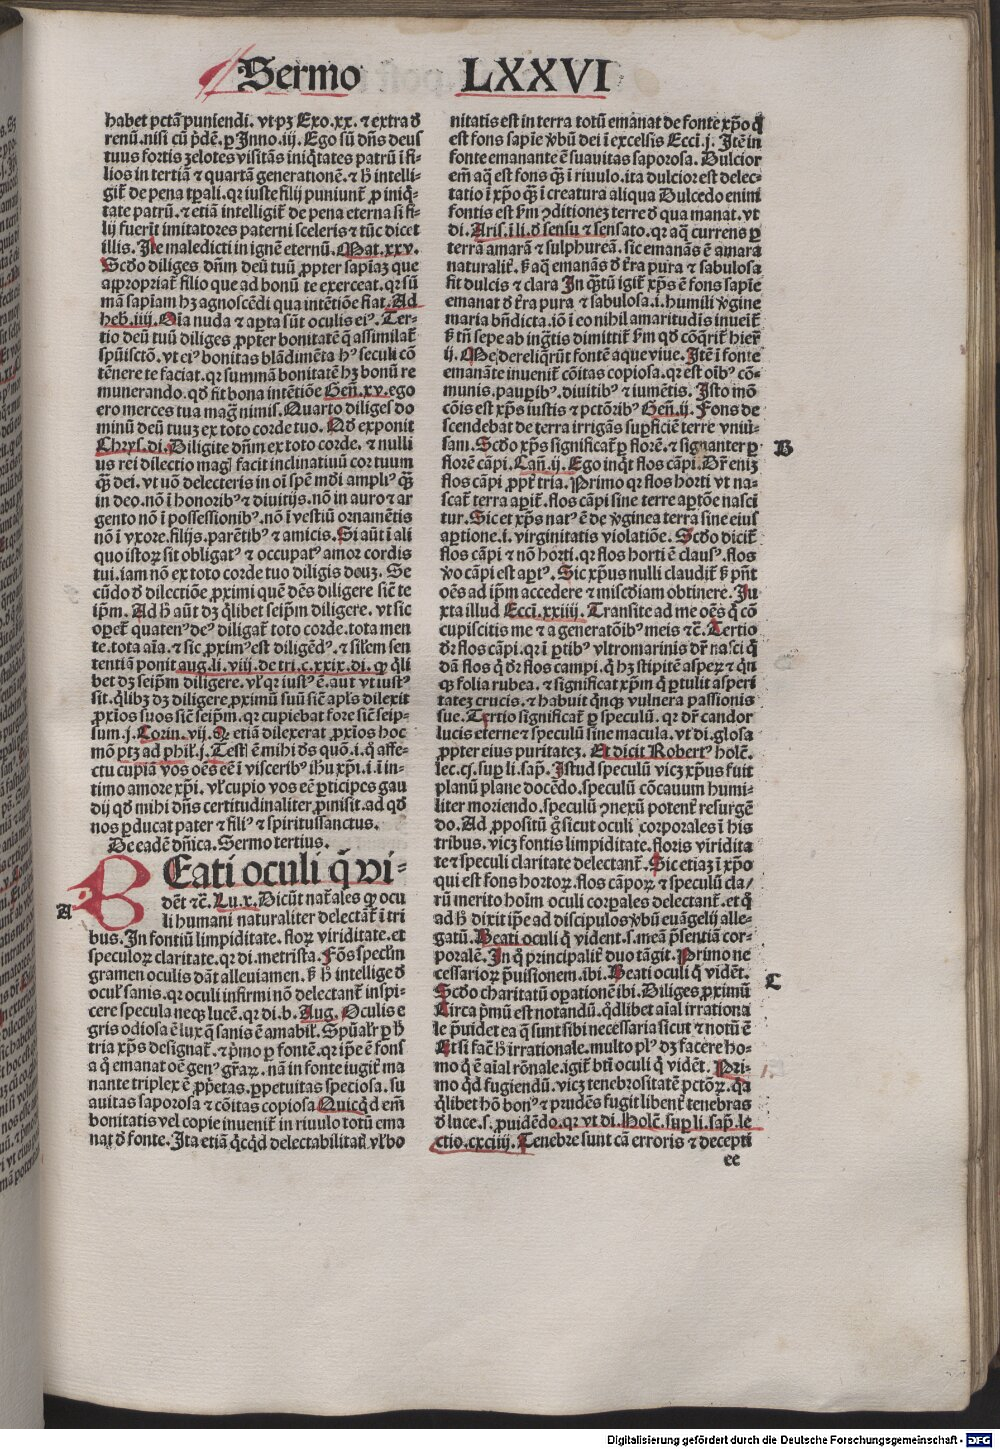 Sermo LXXVI
habet pctā puniendi. vt pȝ Exo.xx. ⁊ extra đ
renū. nisi cū p̄dē. ꝑ Inno.iij. Ego sū dn̄s deus
tuus fortis zelotes visitās iniq̄tates patrū ī fi-
lios in tertiā ⁊ quartā generationē. ⁊ h̄ intelli-
git̄ de pena tꝑali. qr iuste filij puniunt̄ ꝓ iniq̄-
tate patrū. ⁊ etiā intelligit̄ de pena eterna si fi-
lij fuerīt imitatores paterni sceleris ⁊ tūc dicet
illis. Ite maledicti in ignē eternū. Mat.xxv.
Scd̄o diliges dn̄m deū tuū ꝓpter sapīaȝ que
aꝓpriat̄ filio que ad bonū te exerceat. qr sū
mā sapīam hȝ agnoscēdi qua intētiōe fiat. Ad
heb.iiij. Oīa nuda ⁊ aꝑta sūt oculis eiꝰ. Ter-
tio deū tuū diliges ꝓpter bonitatē q̄ assimilat̄
spūisctō. vt eiꝰ bonitas blādimēta hꝰ seculi cō
tēnere te faciat. qr summā bonitatē hȝ bonū re
munerando. qd̄ fit bona intētiōe Gen̄.xv. ego
ero merces tua maḡ nimis. Quarto diliges do
minū deū tuuȝ ex toto corde tuo. Qd̄ exponit
Chrys. di. Diligite dn̄m ex toto corde. ⁊ nulli
us rei dilectio maḡ facit inclinatiuū cor tuum
q̄ȝ dei. vt uō delecteris in oī spē mdi ampliꝰ q̄ȝ
in deo. nō ī honoribꝰ ⁊ diuitijs. nō in auro ⁊ ar
gento nō ī possessionibꝰ. nō ī vestiū ornamētis
nō ī vxore. filijs. parētibꝰ ⁊ amicis. Si aūt ī ali
quo istoꝝ sit obligatꝰ ⁊ occupatꝰ amor cordis
tui. iam nō ex toto corde tuo diligis deuȝ. Se
cūdo đ dilectiōe ꝓximi quē dēs diligere sic̄ te
ip̄m. Ad h̄ aūt dȝ q̄libet seip̄m diligere. vt sic
oꝑet̄ quatenꝰ deꝰ diligat̄ toto corde. tota men
te. tota aīa. ⁊ sic ꝓximꝰ est diligēdꝰ. ⁊ silem sen
tentiā ponit aug. li. viij. de tri. c. xxix. di. ꝙ q̄li
bet dȝ seip̄m diligere. vl̓ qr iustꝰ ē. aut vt iustꝰ
sit. q̄libȝ dȝ diligere ꝓximū suū sic̄ apl̓s dilexit
ꝓxīos suos sic̄ seip̄m. qr cupiebat fore sic̄ seip-
sum. j. Corin. vij. ꝙ etiā dilexerat ꝓxīos hoc
mō ptȝ ad phil̓. j. Test̄ ē mihi dn̄s quō. i. q̄ affe-
ctu cupiā vos oēs eē ī viscerib̓ ihu xp̄i. i. ī in-
timo amore xp̄i. vl̓ cupio vos eē ꝑticipes gau
dij qd̄ mihi dn̄s certitudinaliter ꝓmisit. ad qd̄
nos ꝑducat pater ⁊ filiꝰ ⁊ spiritussanctus.
De eadē dn̄ica. Sermo tertius.
BEati oculi q̄ vi-
A
dēt ⁊c̄. Lu.x. Dicūt nat̄ales ꝙ ocu
li humani naturaliter delectāt̄ ī tri
bus. In fontiū limpiditate. floꝝ viriditate. et
speculoꝝ claritate. qr di. metrista. Fōs specl̓m
gramen oculis dāt alleuiamen. ẜ h̄ intellige đ
ocul̓ sanis. qr oculi infirmi nō delectant̄ inspi-
cere specula neqȝ lucē. qr di. b. Aug. Oculis e
gris odiosa ē lux q̄ sanis ē amabil̓. Spūal̓r ꝑ h̄
tria xp̄s designat̄. ⁊ p̄mo ꝑ fontē. qr ip̄e ē fons
a q̄ emanat oē genꝰ gr̄aꝝ. nā in fonte iugit̄ ma
nante triplex ē ꝓp̄etas. ꝑpetuitas speciosa. su
auitas saporosa ⁊ cōitas copiosa Quicq̄d em̄
bonitatis vel copie inuenit̄ in riuulo totū ema
nat đ fonte. Ita etiā q̄cq̄d delectabilitatī vl̓ bo
nitatis est in terra totū emanat de fonte xp̄o q̄
est fons sapīe v̄bū dei ī excelsis Eccī. j. Itē in
fonte emanante ē suauitas saporosa. Dulcior
em̄ aq̄ est fons q̄ȝ ī riuulo. ita dulcior est delec-
tatio ī xp̄o q̄ȝ ī creatura aliqua Dulcedo enim
fontis est ẜm ꝯditioneȝ terre đ qua manat. vt
di. Aris. i li. đ sensu ⁊ sensato. qr aq̄ currens ꝑ
terrā amarā ⁊ sulphureā. sic emanās ē amara
naturalit̄. ẜ aq̄ emanās đ t̄ra pura ⁊ sabulosa
fit dulcis ⁊ clara In q̄ȝtū igit̄ xp̄s ē fons sapīe
emanat đ t̄ra pura ⁊ sabulosa. i. humili v̄gine
maria bn̄dicta. iō ī eo nihil amaritudīs inueit̄
ẜ tn̄ sepe ab ing̓tis dimittit̄ ẜm qd̄ cōq̄rit̄ hier̄
ij. Me dereliq̄rūt fontē aque viue. Itē ī fonte
emanāte inuenit̄ cōitas copiosa. qr est oībꝰ cō-
munis. pauꝑibꝰ. diuitibꝰ ⁊ iumētis. Isto mō
cōis est xp̄s iustis ⁊ pctōribꝰ Gen̄.ij. Fons de
scendebat de terra irrigās suꝑficiē terre vniū-
sam. Scd̄o xp̄s significat̄ ꝑ florē. ⁊ signanter ꝑ
B
florē cāpi. Can̄. ij. Ego inq̄t flos cāpi. Dr̄ eniȝ
flos cāpi ꝓpt̄ tria. Primo qr flos horti vt na-
scat̄ terra aꝑit̄. flos cāpi sine terre aꝑtōe nasci
tur. Sic et xp̄s natꝰ ē de v̄ginea terra sine eius
aꝑtione. i. virginitatis violatiōe. Scd̄o dicit̄
flos cāpi ⁊ nō horti. qr flos horti ē clausꝰ. flos
v̄o cāpi est aꝑtꝰ. Sic xp̄us nulli claudit̄ ẜ pn̄t
oēs ad ip̄m accedere ⁊ misc̄diam obtinere. Iu
xta illud Eccī. xxiiij. Transite ad me oēs q̄ cō
cupiscitis me ⁊ a generatōibꝰ meis ⁊c̄. Tertio
dr̄ flos cāpi. qr ī ꝑtibꝰ vltromarinis dr̄ nasci q̄
dā flos q̄ dr̄ flos campi. q̄ hȝ stipitē asperȝ ⁊ q̄n
qȝ folia rubea. ⁊ significat xp̄m q̄ ꝑtulit asperi
tateȝ crucis. ⁊ habuit q̄nqȝ vulnera passionis
sue. Tertio significat̄ ꝑ speculū. qr dr̄ candor
lucis eterne ⁊ speculū sine macula. vt di. glosa
ꝓpter eius puritateȝ. Et dicit Robertꝰ holē.
lec. cj. suꝑ li. sap̄. Istud speculū vicȝ xp̄us fuit
planū plane docēdo. speculū cōcauum humi-
liter moriendo. speculū ꝯnexū potent̄ resurgē
do. Ad ꝓpositū g̓ sicut oculi corporales ī his
tribus. vicȝ fontis limpiditate. floris viridita
te ⁊ speculi claritate delectant̄. Sic etiaȝ ī xp̄o
qui est fons hortoꝝ. flos cāpoꝝ ⁊ speculū cla/
rū merito hoīm oculi corꝑales delectant̄. et q̄
ad h̄ dixit ip̄e ad discipulos v̄bū euāgelij alle-
gatū. Beati oculi q̄ vident. s. meā p̄sentiā cor-
poralē. In q̄ principalit̄ duo tāgit. Primo ne
cessarioꝝ p̄uisionem. ibi. Beati oculi q̄ vidēt.
C
Scd̄o charitatū oꝑationē ibi. Diliges ꝓximū
Circa p̄mū est notandū. q̄dlibet aīal irrationa
le p̄uidet ea q̄ sunt sibi necessaria sicut ⁊ notū ē
Et si facit̄ h̄ irrationale. multo plꝰ dȝ facere ho-
mo q̄ ē aīal rōnale. igit̄ bt̄i oculi q̄ vidēt. Pri-
mo qd̄ fugiendū. vicȝ tenebrositatē pctōꝝ. qa
q̄libet hō bonꝰ ⁊ prudēs fugit libent̄ tenebras
đ luce. s. ꝓuidēdo. qr vt di. Holē. suꝑ li. sap̄. le
ctio. cxciiij. Tenebre sunt cā erroris ⁊ decepti
ee
Digitalisierung gefördert durch die Deutsche Forschungsgemeinschaft - DFG